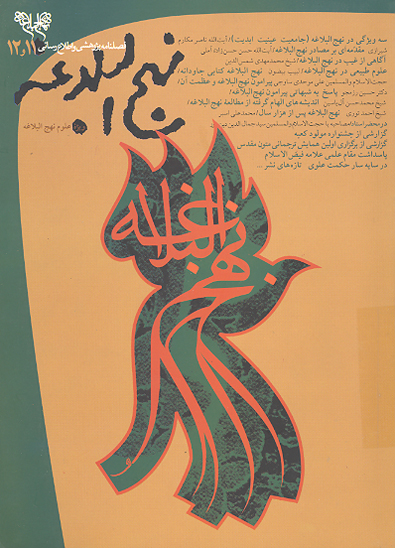 فصلنامه پژوهشی و اطلاع رسانی ۱۱ و ۱۲
نهج البلاغه
ویژه علوم نهج البلاغه
سه ویژگی در نهج البلاغه (جامعیت عینیت ابدیت)/آیت‌الله ناصر مکارم
شیرازی مقدمه‌ای بر مصادر نهج البلاغه/آیت‌الله حسن حسن‌زاده آملی
آگاهی از غیب در نهج البلاغه/شیخ محمدمهدی شمس الدین
علوم طبیعی در نهج البلاغه/لبیب بیضون نهج البلاغه کتابی جاودانه/
حجت‌الاسلام والمسلمین علی پیرامون نهج البلاغه و عظمت آن/
دکتر حسین رزمجو پاسخ به شبهاتی پیرامون نهج البلاغه/
شیخ محمدحسن آل‌یاسین اندیشه‌های الهام گرفته از مطالعهٔ نهج البلاغه/
شیخ احمد نهج البلاغه پس از هزار سال/محمدعلی اسبر
در محضر استاد/مصاحبه با حجت‌الاسلام والمسلمین سیدجمال‌الدین
گزارشی از جشنواره مولود کعبه
گزارشی از برگزاری اولین همایش ترجمانی متون مقدس
پاسداشت مقام علمی علامه فیض الاسلام
در سایه سار حکمت علوی تازه‌های نشر ...
نهج البلاغه